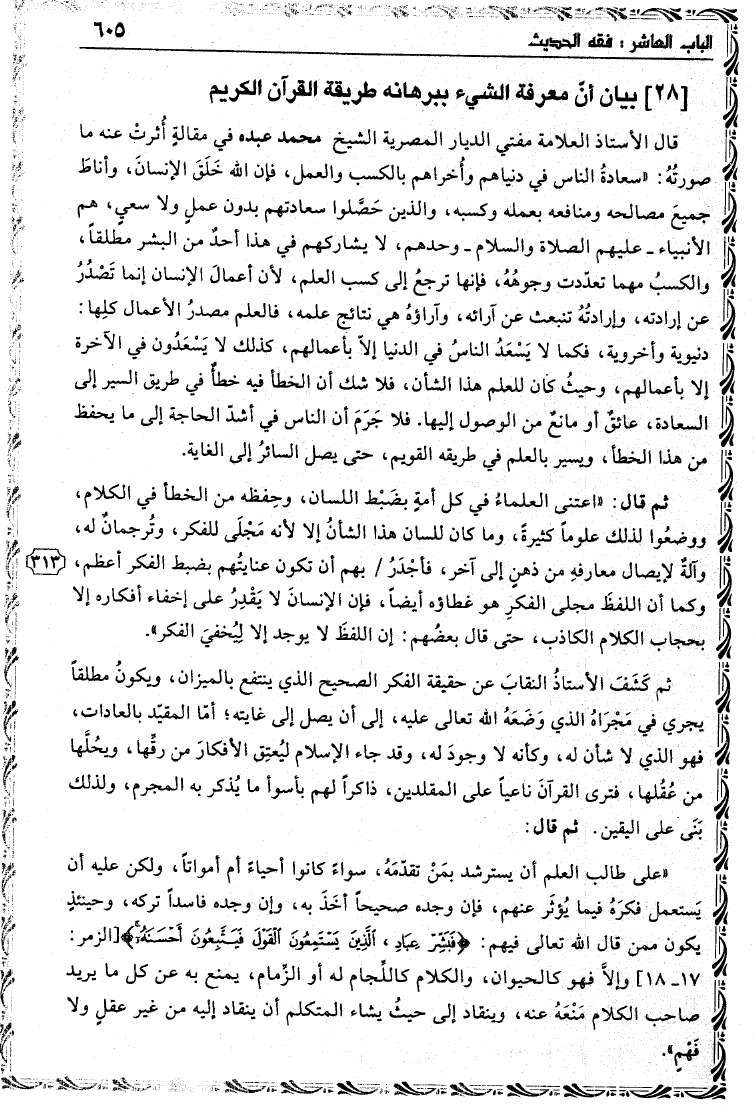 الباب العاشر : فقه الحديث ٦٠٥
[٢٨] بيان أنّ معرفة الشيء ببرهانه طريقة القرآن الكريم
قال الأستاذ العلامة مفتي الديار المصرية الشيخ محمد عبده في مقالةٍ أُثرتْ عنه ما
صورتُهُ: «سعادةُ الناس في دنياهم وأُخراهم بالكسب والعمل، فإن الله خَلَقَ الإنسانَ، وأناطَ
جميعَ مصالحه ومنافعه بعمله وكسبه، والذين حَصَّلوا سعادتهم بدون عملٍ ولا سعي، هم
الأنبياء ـ عليهم الصلاة والسلام ـ وحدهم، لا يشاركهم في هذا أحدٌ من البشر مطلقاً،
والكسبُ مهما تعدّدت وجوهُهُ، فإنها ترجعُ إلى كسب العلم، لأن أعمالَ الإنسان إنما تَصْدُرُ
عن إرادته، وإرادتُهُ تنبعث عن آرائه، وآراؤهُ هي نتائج علمه، فالعلم مصدرُ الأعمال كلِها:
دنيوية وأخروية، فكما لا يَسْعَدُ الناسُ في الدنيا إلاّ بأعمالهم، كذلك لا يَسْعَدُون في الآخرة
إلا بأعمالهم، وحيثُ كان للعلم هذا الشأن، فلا شك أن الخطأ فيه خطأٌ في طريق السير إلى
السعادة، عائقٌ أو مانعٌ من الوصول إليها. فلا جَرَمَ أن الناس في أشدّ الحاجة إلى ما يحفظ
من هذا الخطأ، ويسير بالعلم في طريقه القويم، حتى يصل السائرُ إلى الغاية.
ثم قال: «اعتنى العلماءُ في كل أمةٍ بضَبْط اللسان، وحِفظه من الخطأ في الكلام،
ووضعُوا لذلك علوماً كثيرةً، وما كان للسان هذا الشأنُ إلا لأنه مَجْلَى للفكر، وتُرجمانٌ له،
وآلةٌ لإيصال معارفهِ من ذهنٍ إلى آخر، فأجْدَرُ / بهم أن تكون عنايتُهم بضبط الفكر أعظم، ٣١٣
وكما أن اللفظَ مجلى الفكرِ هو غطاؤه أيضاً، فإن الإنسانَ لا يَقْدِرُ على إخفاء أفكاره إلا
بحجاب الكلام الكاذب، حتى قال بعضُهم: إن اللفظَ لا يوجد إلا لِيُخفيَ الفكر».
ثم كَشَفَ الأستاذُ النقابَ عن حقيقة الفكر الصحيح الذي ينتفع بالميزان، ويكونُ مطلقاً
يجري في مَجْرَاهُ الذي وَضَعَهُ الله تعالى عليه، إلى أن يصل إلى غايته؛ أمّا المقيّد بالعادات،
فهو الذي لا شأن له، وكأنه لا وجودَ له، وقد جاء الإسلام ليُعتِق الأفكارَ من رِقِّها، ويحُلَّها
من عُقُلها، فترى القرآنَ ناعياً على المقلدين، ذاكراً لهم بأسوأ ما يُذكر به المجرم، ولذلك
بَنَى على اليقين. ثم قال:
«على طالب العلم أن يسترشد بمَنْ تقدّمَهُ، سواءً كانوا أحياءً أم أمواتاً، ولكن عليه أن
يَستعمل فكرَهُ فيما يُؤثَر عنهم، فإن وجده صحيحاً أخَذَ به، وإن وجده فاسداً تركه، وحينئذٍ
يكون ممن قال الله تعالى فيهم: ﴿فَبَشِّرْ عِبَادِ ، ٱلَّذِينَ يَسْتَمِعُونَ ٱلْقَوْلَ فَيَتَّبِعُونَ أَحْسَنَهُۥٓ﴾[الزمر:
١٧ـ ١٨] وإلاَّ فهو كالحيوان، والكلام كاللِّجام له أو الزِّمام، يمنع به عن كل ما يريد
صاحب الكلام مَنْعَهُ عنه، وينقاد إلى حيثُ يشاء المتكلم أن ينقاد إليه من غير عقلٍ ولا
فَهْمٍ».